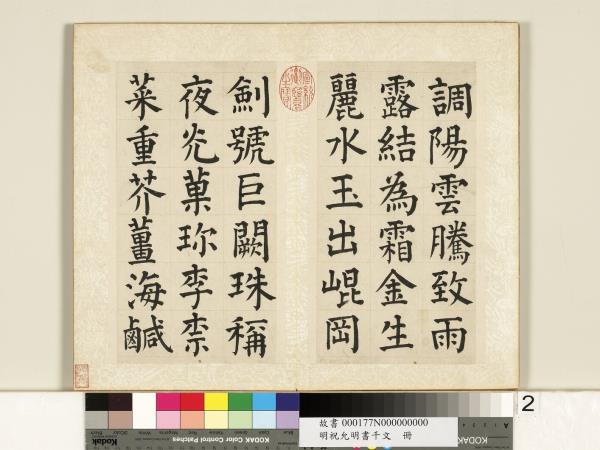 調陽雲騰致雨
露結為霜金生
麗水玉出崐岡
劍號巨闕珠稱
夜光菓珎李柰
菜重芥薑海鹹
2
故書 000177N000000000
明祝允明書千文 冊
KODAK Color Control Patches
Kodak